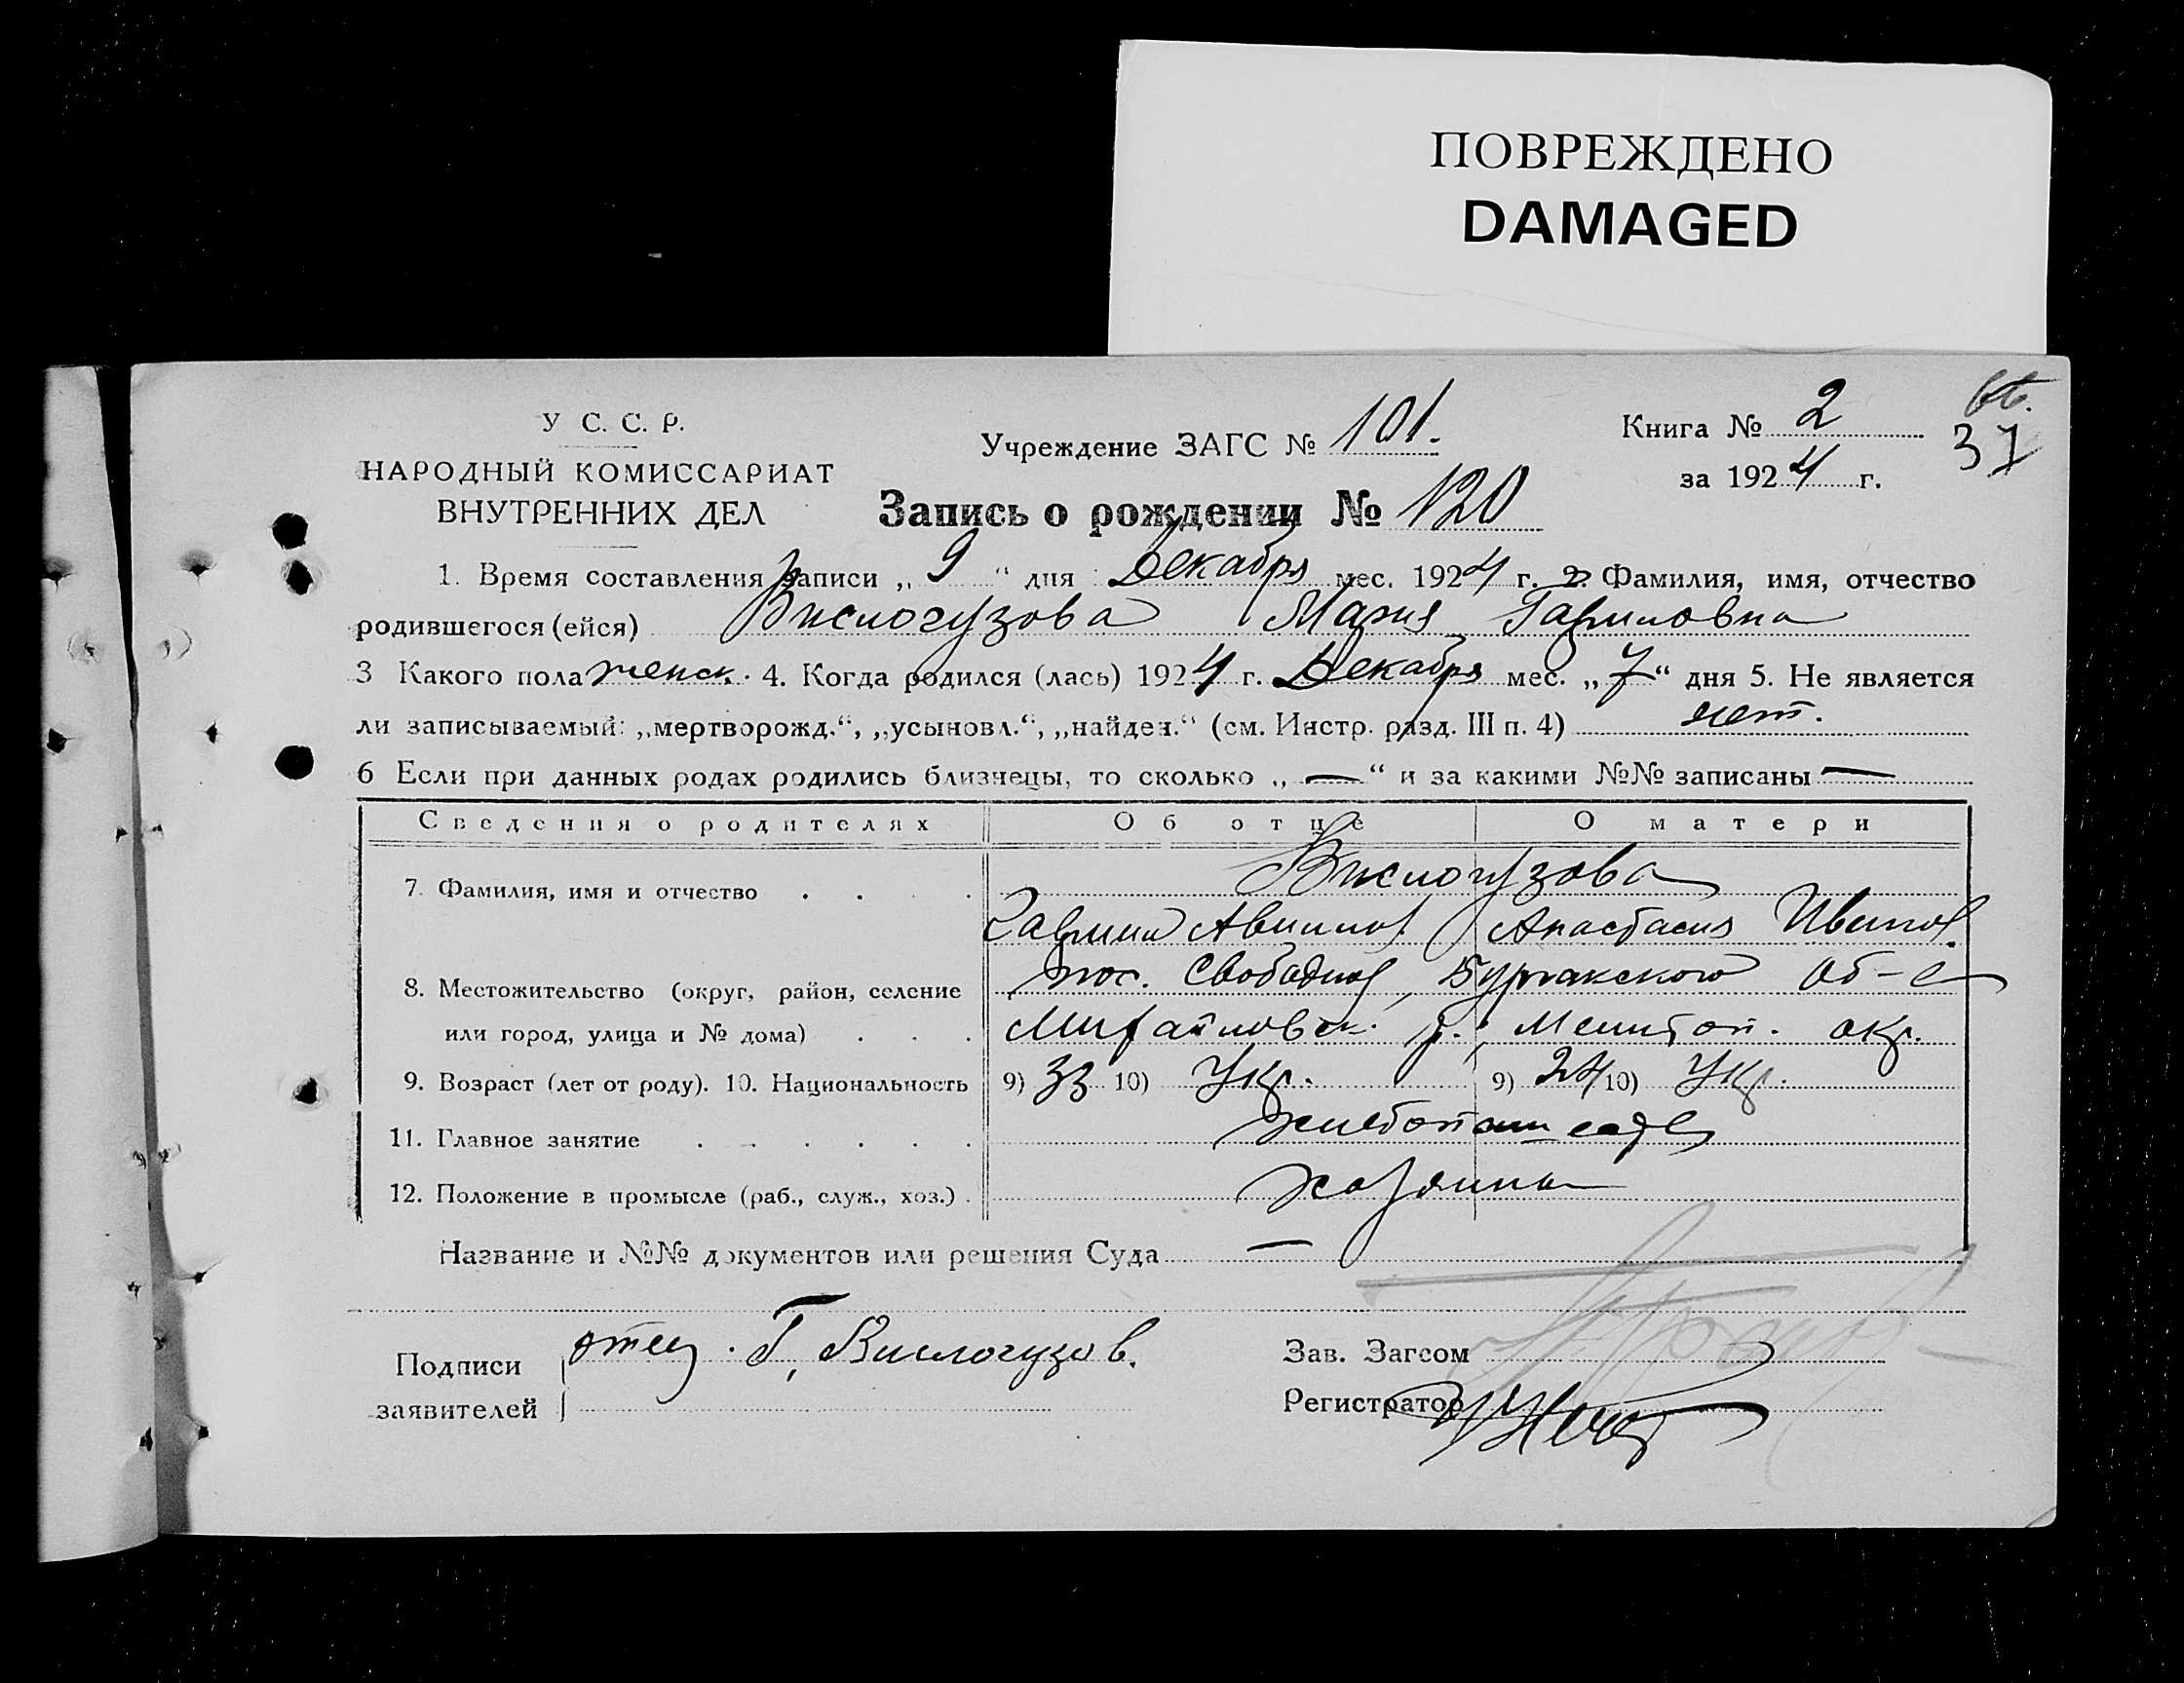 ПОВРЕЖДЕНО
DAMAGED
У С. С. Р.
НАРОДНЫЙ КОМИССАРИАТ
ВНУТРЕННИХ ДЕЛ
Учреждение ЗАГС № 101.
Книга № 2
37
за 1924 г.
Запись о рождении № 120
1. Время составления записи „ 9 “ дня Декабря мес. 1924 г. 2. Фамилия, имя, отчество
родившегося (ейся) Вислогузова Мария Гавриловна
3 Какого пола женск. 4. Когда родился (лась) 1924 г. Декабря мес. „ 7 “ дня 5. Не является
ли записываемый: „мертворожд.“, „усыновл.“, „найден.“ (см. Инстр. разд. III п. 4) нет.
6 Если при данных родах родились близнецы, то сколько „ — “ и за какими №№ записаны —
Сведения о родителях Об отце О матери
7. Фамилия, имя и отчество . . . . Вислогузова
Гаврил Анастасия Иванов.
8. Местожительство (округ, район, селение пос. Свободное, Бурчакского об-а
или город, улица и № дома) . . . Михайловск. р., Мелитоп. окр.
9. Возраст (лет от роду). 10. Национальность 9) 33 10) Укр. 9) 24 10) Укр.
11. Главное занятие . . . . . . хлебопашество
12. Положение в промысле (раб., служ., хоз.) . хозяина
Название и №№ документов или решения Суда —
Подписи заявителей отец. Г. Вислогузов.
Зав. Загсом
Регистратор